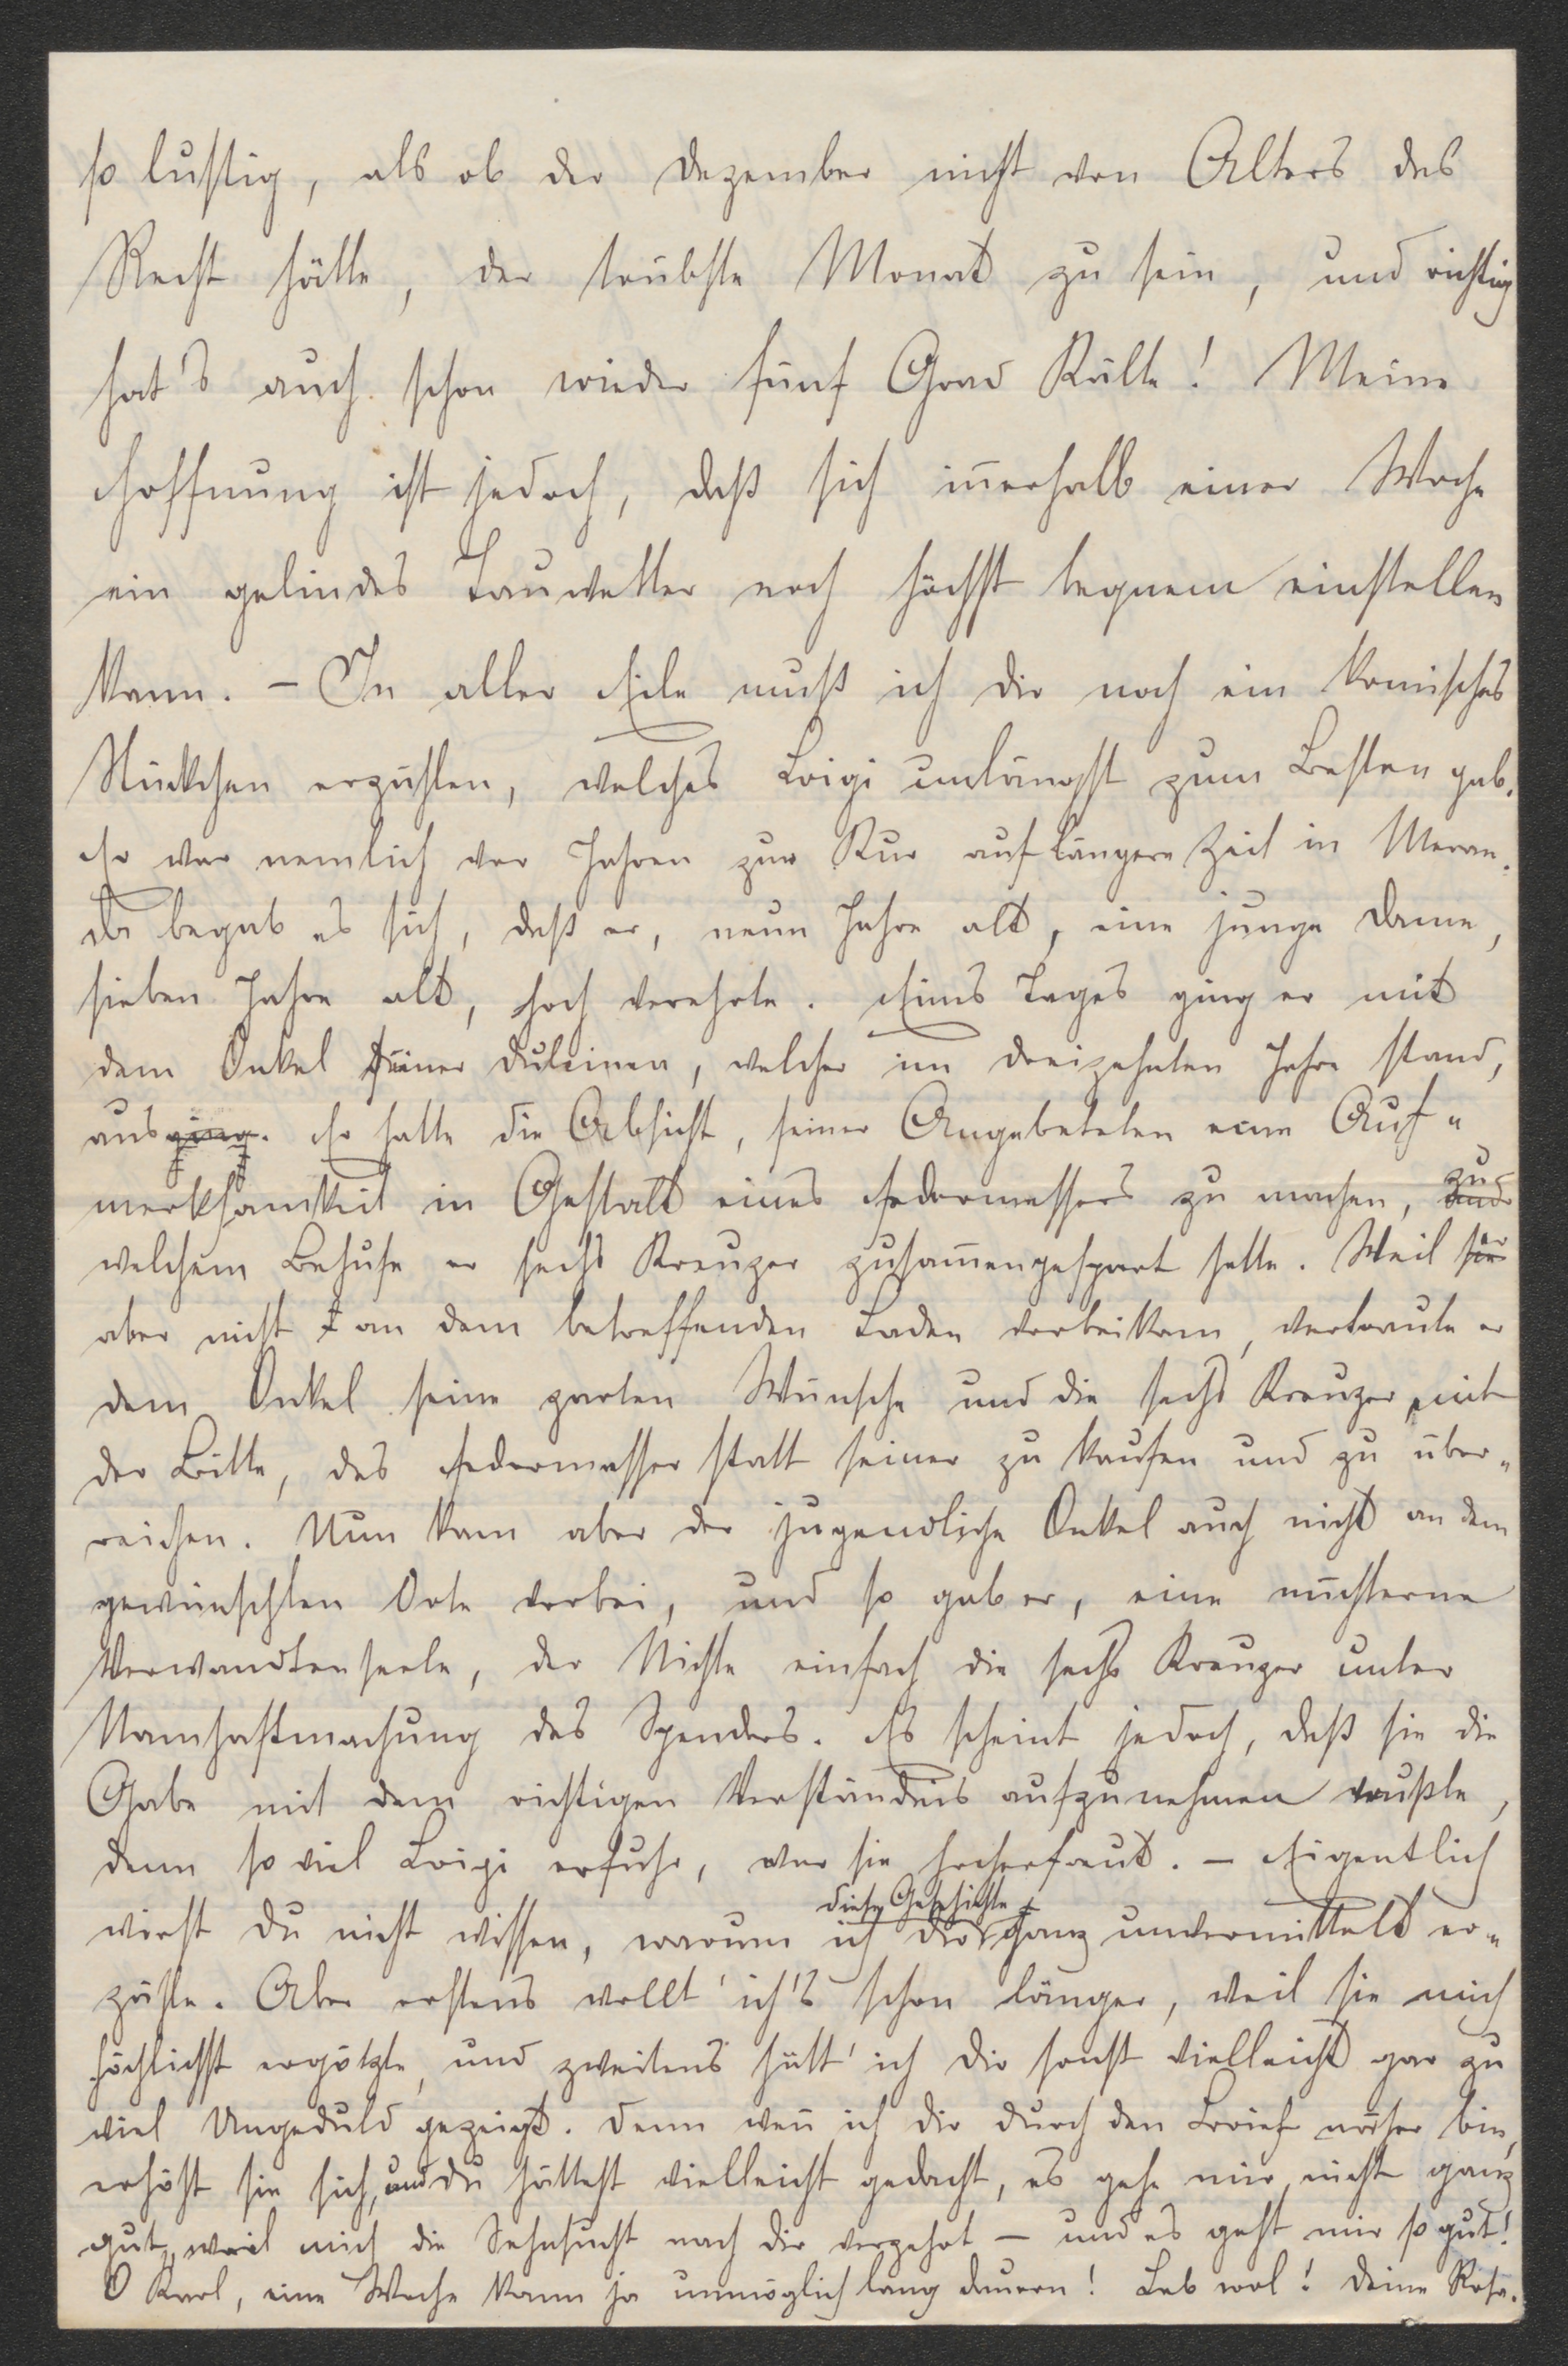 so lustig, als ob der Dezember nicht von Alters das
Recht hätte, der trübste Monat zu sein, und richtig
hat's auch schon wieder fünf Grad Kälte! Meine
Hoffnung ist jedoch, daß sich iñerhalb einer Woche
ein gelindes Tauwetter noch höchst bequem einstellen
kann. – In aller Eile muß ich dir noch ein komisches
Stückchen erzählen, welches Loigi unlängst zum Besten gab.
Er war nemlich vor Jahren zur Kur auf längere Zeit in Meran.
Da begab es sich, daß er, neun Jahre alt, eine junge Dame,
sieben Jahre alt, hoch verehrte. Eines Tages ging er mit
dem Onkel seiner Dulcinea, welcher im dreizehnten Jahre stand,
aus ging. Er hatte die Absicht, seiner Angebeteten eine Auf-
merksamkeit in Gestalt eines Federmessers zu machen, zu
welchem Behufe er sechs Kreuzer zusam̃engespart hatte. Weil er
aber nicht an dem betreffenden Laden vorbeikam, vertraute er
dem Onkel seine zarten Wünsche und die sechs Kreuzer mit
der Bitte, das Federmesser statt seiner zu kaufen und zu über-
reichen. Nun kam aber der jugendliche Onkel auch nicht an dem
gewünschten Orte vorbei, und so gab er, eine nüchterne
Verwandtenseele, der Nichte einfach die sechs Kreuzer unter
Namhaftmachung des Spenders. Es scheint jedoch, daß sie die
Gabe mit dem richtigen Verständnis aufzunehmen wußte,
denn so viel Loigi erfuhr, war sie hocherfreut. – Eigentlich
wirst du nicht wissen, warum ich dir diese Geschichte ganz unvermittelt er-
zähle. Aber erstens wollt' ich's schon länger, weil sie mich
höchlichst ergötzte, und zweitens hätt' ich dir sonst vielleicht gar zu
viel Ungeduld gezeigt. Denn weñ ich dir durch den Brief näher bin,
erhöht sie sich, und du hättest vielleicht gedacht, es gehe mir nicht ganz
gut, weil mich die Sehnsucht nach dir verzehrt – und es geht mir so gut!
O Karl, eine Woche kann ja unmöglich lang dauern! Leb wol! Deine Rosa.